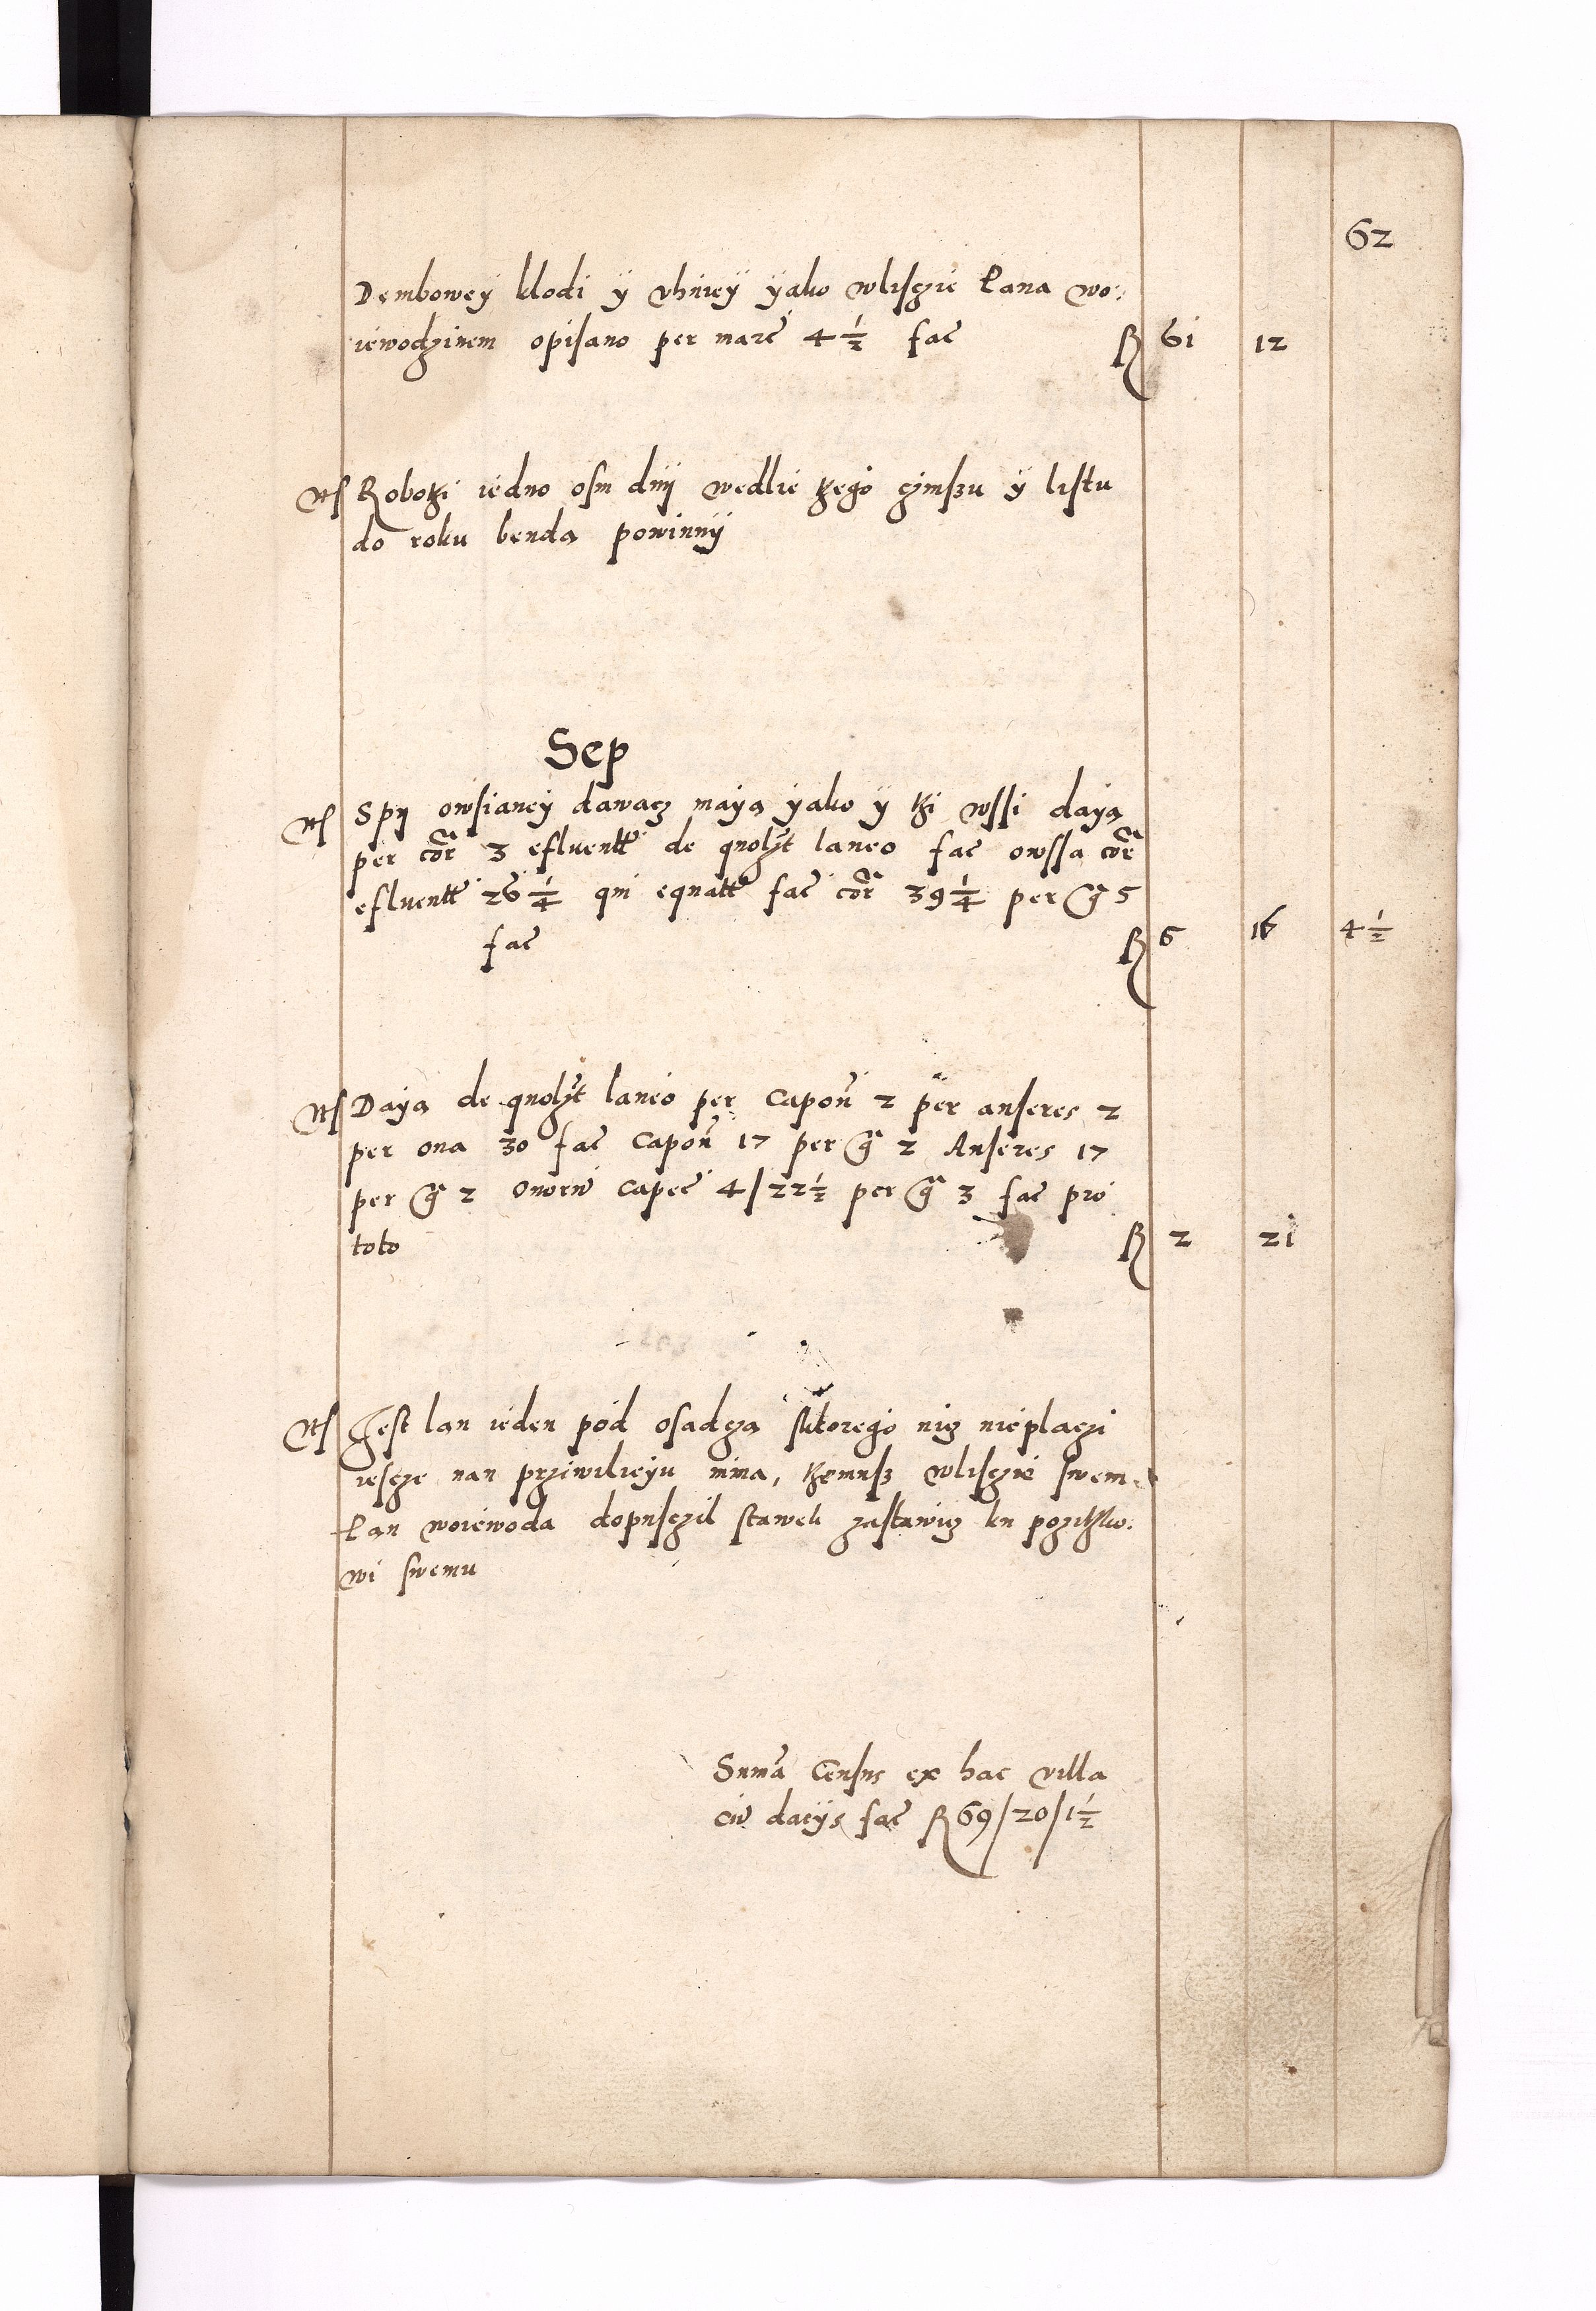 62
Dembowey klodi ÿ vhniey ÿako wlisczie Pana wo:
iewodzinem opisano per marc 4 1/2 fac R 61 12
Ns Robotzi iedno osm dnÿ wedlie tzego czinszu ÿ listu
do roku benda powinnÿ
Sep
Ns Spÿ owsianeÿ dawacz maÿa ÿako ÿ tzi wssi daÿa
per cor 3 efluentt de quolzt laneo fac owssa cor
efluentt 26 1/4 qui equatt fac cor 39 1/4 per g 5
fac R 6 16 4 1/2
Ns Daÿa de quolzt laneo per Capon 2 per anseres 2
per oua 30 fac Capon 17 per g 2 Anseres 17
per g 2 Ouorum Capec 4/22 1/2 per g 3 fac pro
toto R 2 21
Ns Jest lan ieden pod osadcza sktorego nicz nieplaczi
iescze nan prziwilieÿu nima, tzemusz wlisczie swem
Pan woiewoda dopusczil stawek zastawicz ku pozitko:
wi swemu
Suma Census ex hac villa
cum dacÿs fac R 69/20/1 1/2